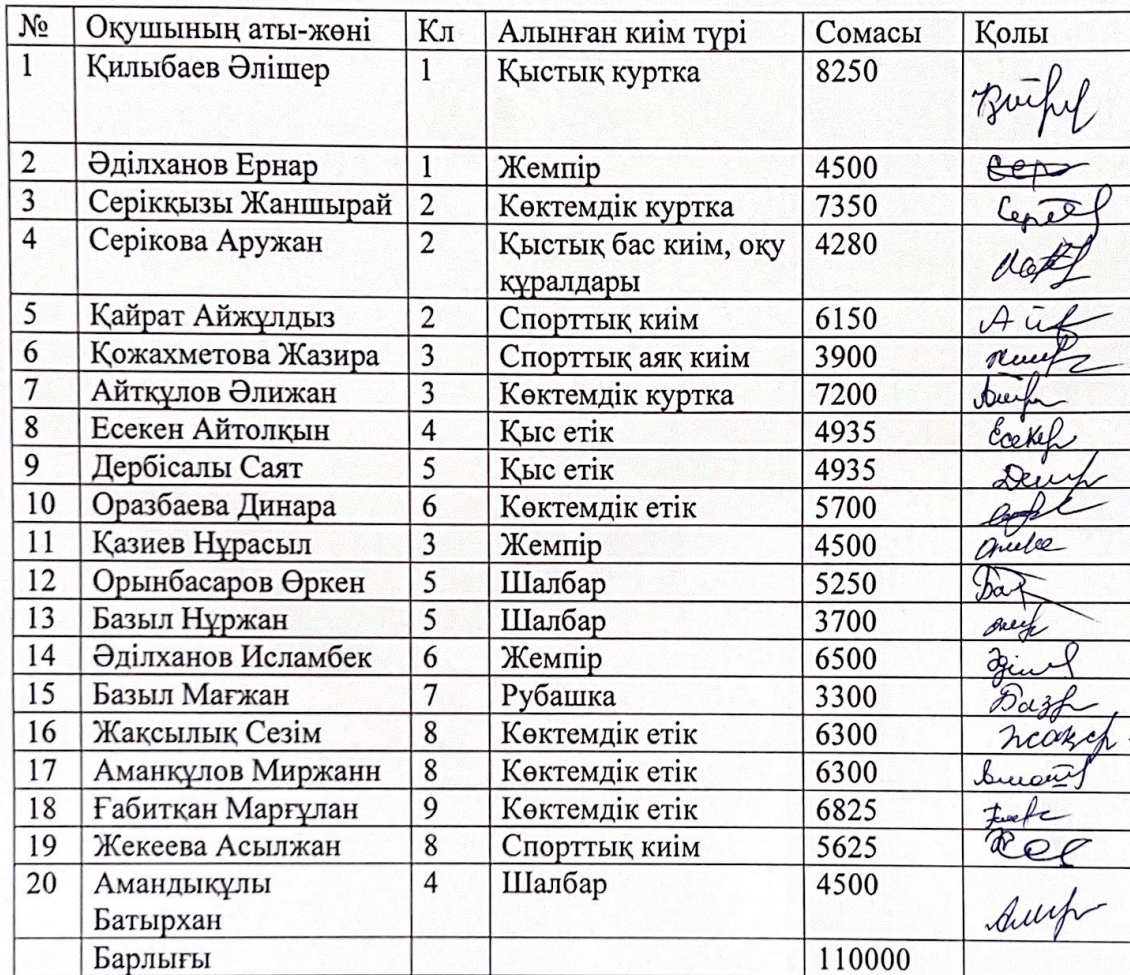 № Оқушының аты-жөні Кл Алынған киім түрі Сомасы Қолы
1 Қилыбаев Әлішер 1 Қыстық куртка 8250
2 Әділханов Ернар 1 Жемпір 4500
3 Серікқызы Жаншырай 2 Көктемдік куртка 7350
4 Серікова Аружан 2 Қыстық бас киім, оқу 4280
құралдары
5 Қайрат Айжұлдыз 2 Спорттық киім 6150
6 Қожахметова Жазира 3 Спорттық аяқ киім 3900
7 Айтқұлов Әлижан 3 Көктемдік куртка 7200
8 Есекен Айтолқын 4 Қыс етік 4935
9 Дербісалы Саят 5 Қыс етік 4935
10 Оразбаева Динара 6 Көктемдік етік 5700
11 Қазиев Нұрасыл 3 Жемпір 4500
12 Орынбасаров Өркен 5 Шалбар 5250
13 Базыл Нұржан 5 Шалбар 3700
14 Әділханов Исламбек 6 Жемпір 6500
15 Базыл Мағжан 7 Рубашка 3300
16 Жақсылық Сезім 8 Көктемдік етік 6300
17 Аманқұлов Миржанн 8 Көктемдік етік 6300
18 Ғабитқан Марғұлан 9 Көктемдік етік 6825
19 Жекеева Асылжан 8 Спорттық киім 5625
20 Амандықұлы 4 Шалбар 4500
Батырхан
Барлығы 110000